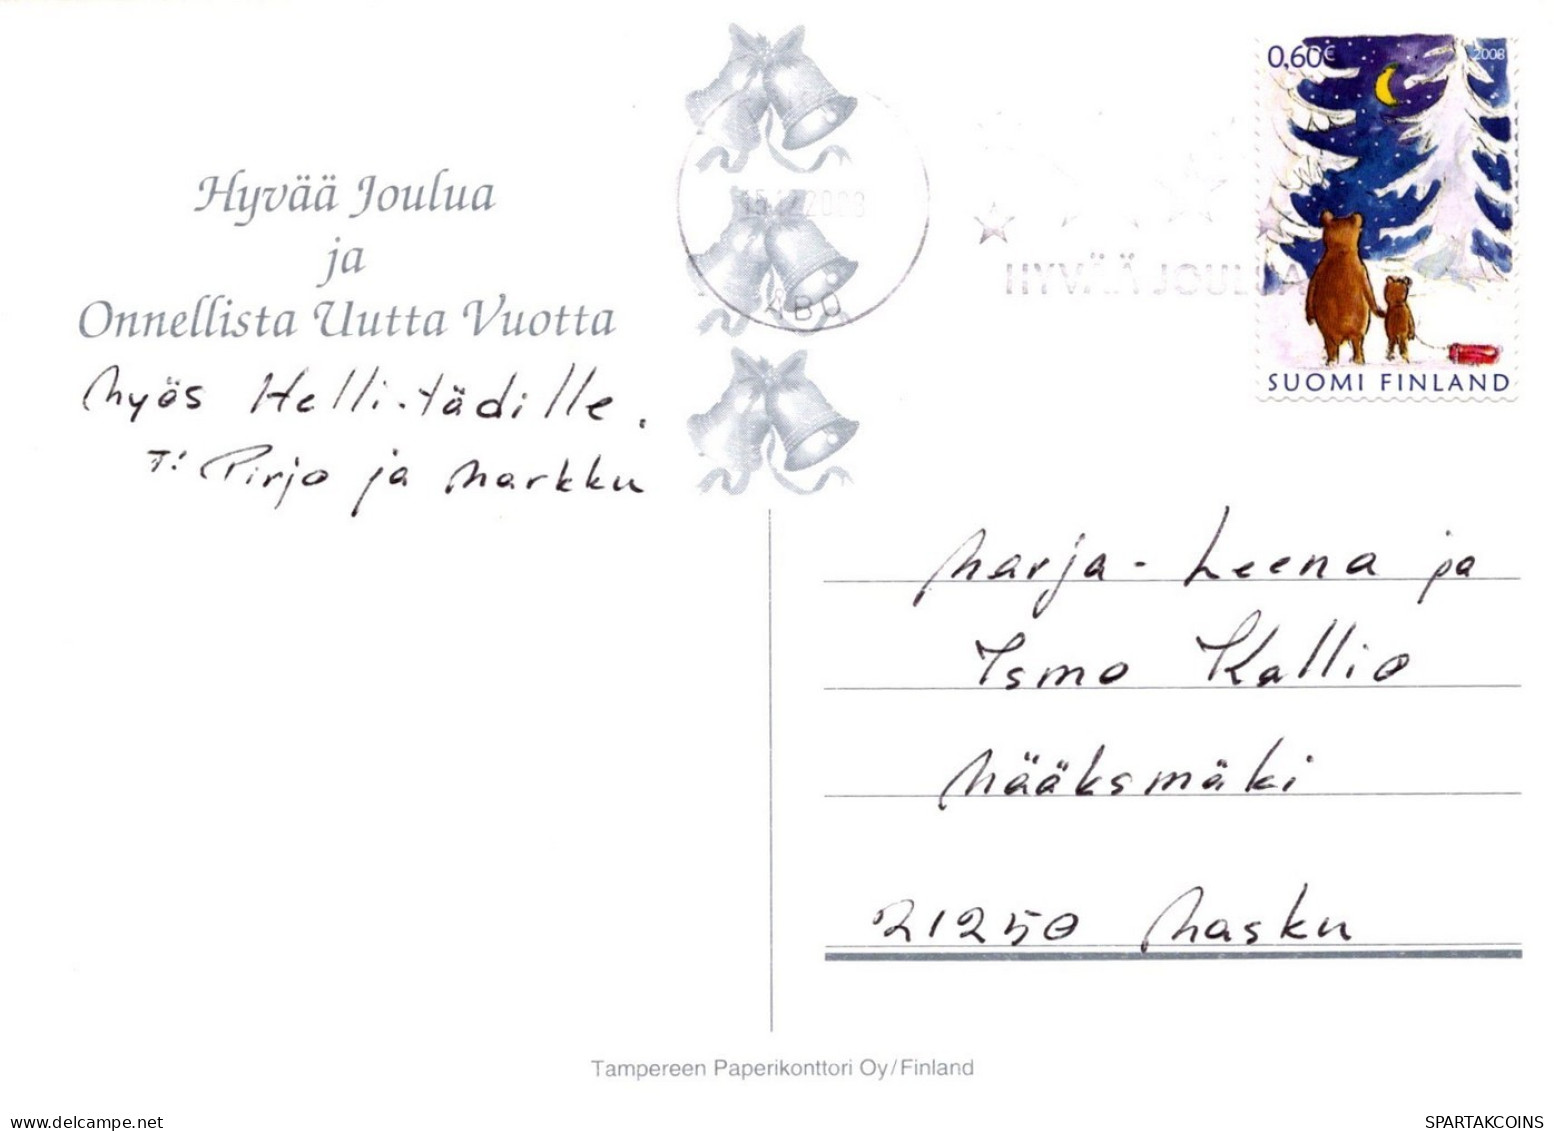 Hyvää Joulua
ja
Onnellista Uutta Vuotta
Myös Helli-tädille.
T: Pirjo ja Markku
15.12.2008
ÅBO
HYVÄÄ JOULUA
0,60€ 2008
SUOMI FINLAND
Marja-Leena ja
Ismo Kallio
Määksmäki
21250 Masku
Tampereen Paperikonttori Oy/Finland
SPARTAKCOINS.COM